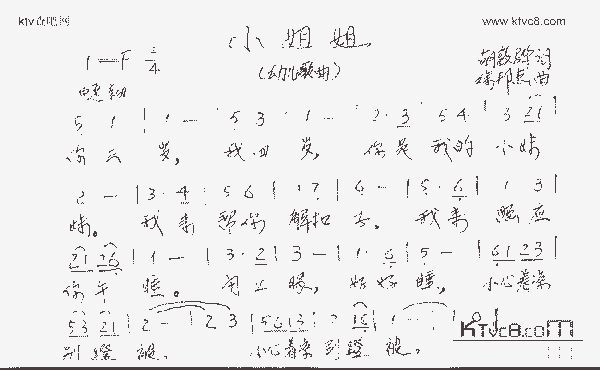 ktv在吧网
www.ktvc8.com
小姐姐
(幼儿歌曲)
1=F 2/4
胡敦骅 词
杨邦杰 曲
5 1 | 1 — | 5 3 | 1 — | 2· 3 | 5 4 | 3 21 |
你三 岁, 我四 岁, 你是 我的 小妹
2 — | 3· 4 | 5 6 | 1· 7 | 6 — | 5· 6 | 1 3 |
妹。 我来 帮你 解扣 子。 我来 照应
21 26 | 1 — | 3· 2 | 3 — | 1· 6 | 5 — | 61 23 |
你午 睡。 闭上 眼, 好好 睡, 小心着凉
53 21 | 2 — | 2 3 | 56 13 | 2 16 | 1 — | 1 0 |
别蹬 被。 小心着凉别蹬 被。
Ktvc8.com